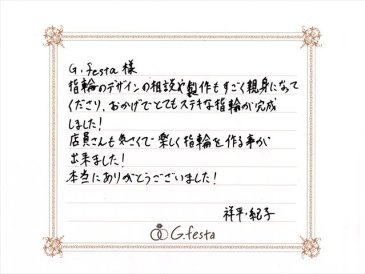 G.festa 様
指輪のデザインの相談や製作もすごく親身になって
くださり、おかげでとてもステキな指輪が完成
しました！
店員さんも気さくで楽しく指輪を作る事が
出来ました！
本当にありがとうございました！
祥平・紀子
G.festa